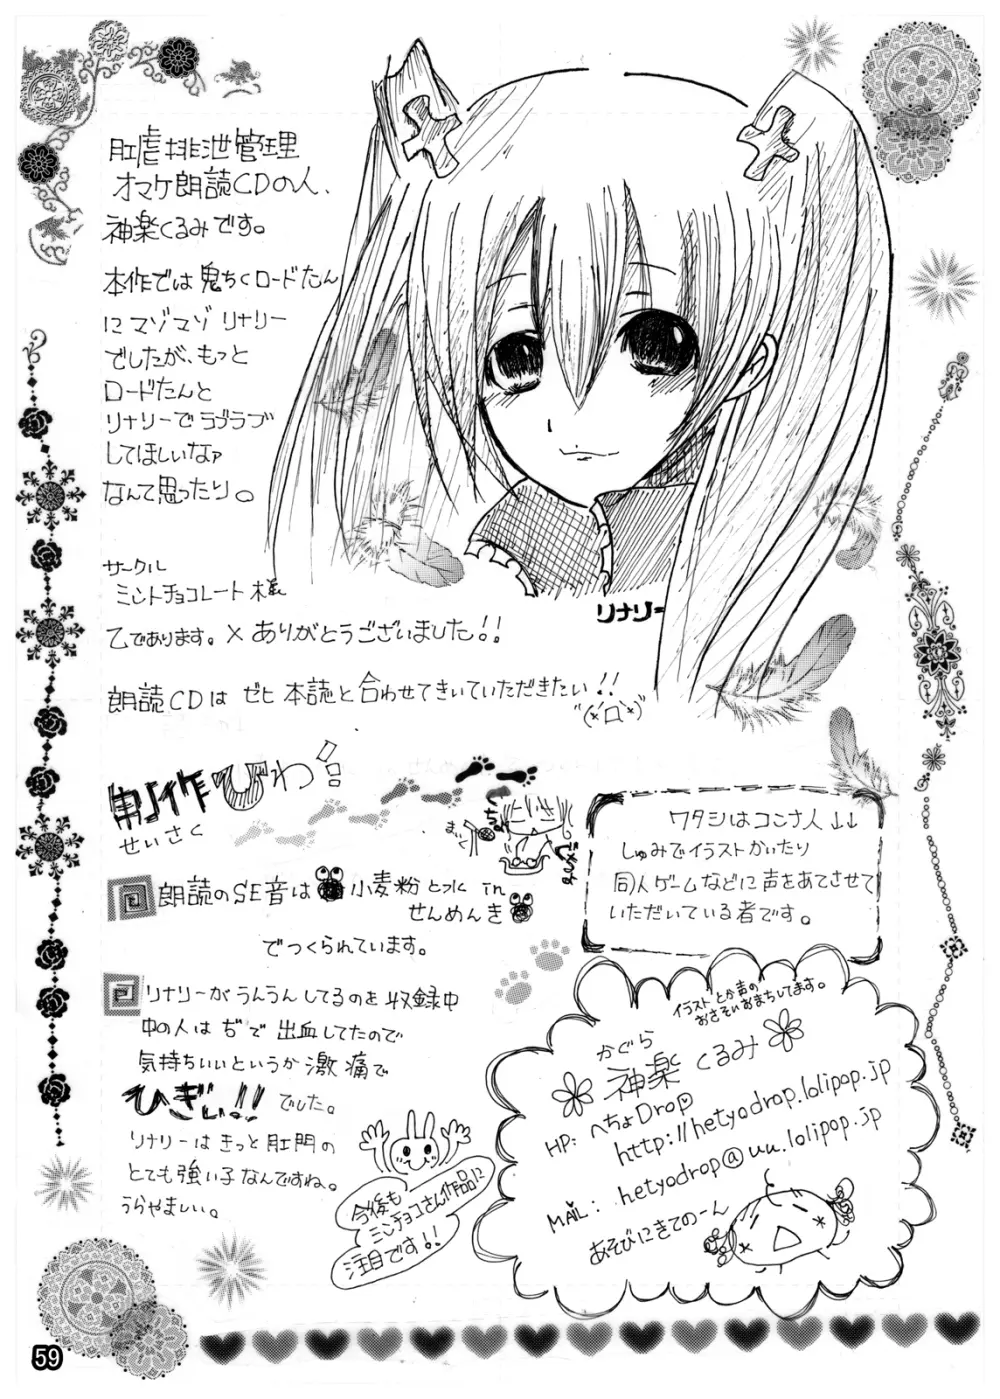 肛虐排泄管理
オマケ朗読CDの人、
神楽くるみです。
本作では鬼ちくロードたん
にマゾマゾ リナリー
でしたが、もっと
ロードたんと
リナリーでラブラブ
してほしいなァ
なんて思ったり。
サークル
ミントチョコレート様
乙であります。×ありがとうございました!!
朗読CDは ゼヒ 本誌と合わせてきいていただきたい!!
リナリー
制作
せいさく
朗読のSE音は 小麦粉と水 in
せんめんき
でつくられています。
リナリーがうんうんしてるのを収録中
中の人は ぢで出血してたので
気持ちいいというか激痛で
ひぎぃっ!! でした。
リナリーはきっと肛門の
とても強い子なんですね。
うらやましい。
今後も
ミンチョコさん作品に
注目です!!
ワタシはコンナ人↓↓
しゅみでイラストかいたり
同人ゲームなどに声をあてさせて
いただいている者です。
イラストとか声の
おさそいおまちしてます。
かぐら
神楽くるみ
HP: へちょDrop
http://hetyodrop.lolipop.jp
MAIL: hetyodrop@uu.lolipop.jp
あそびにきてのーん
59